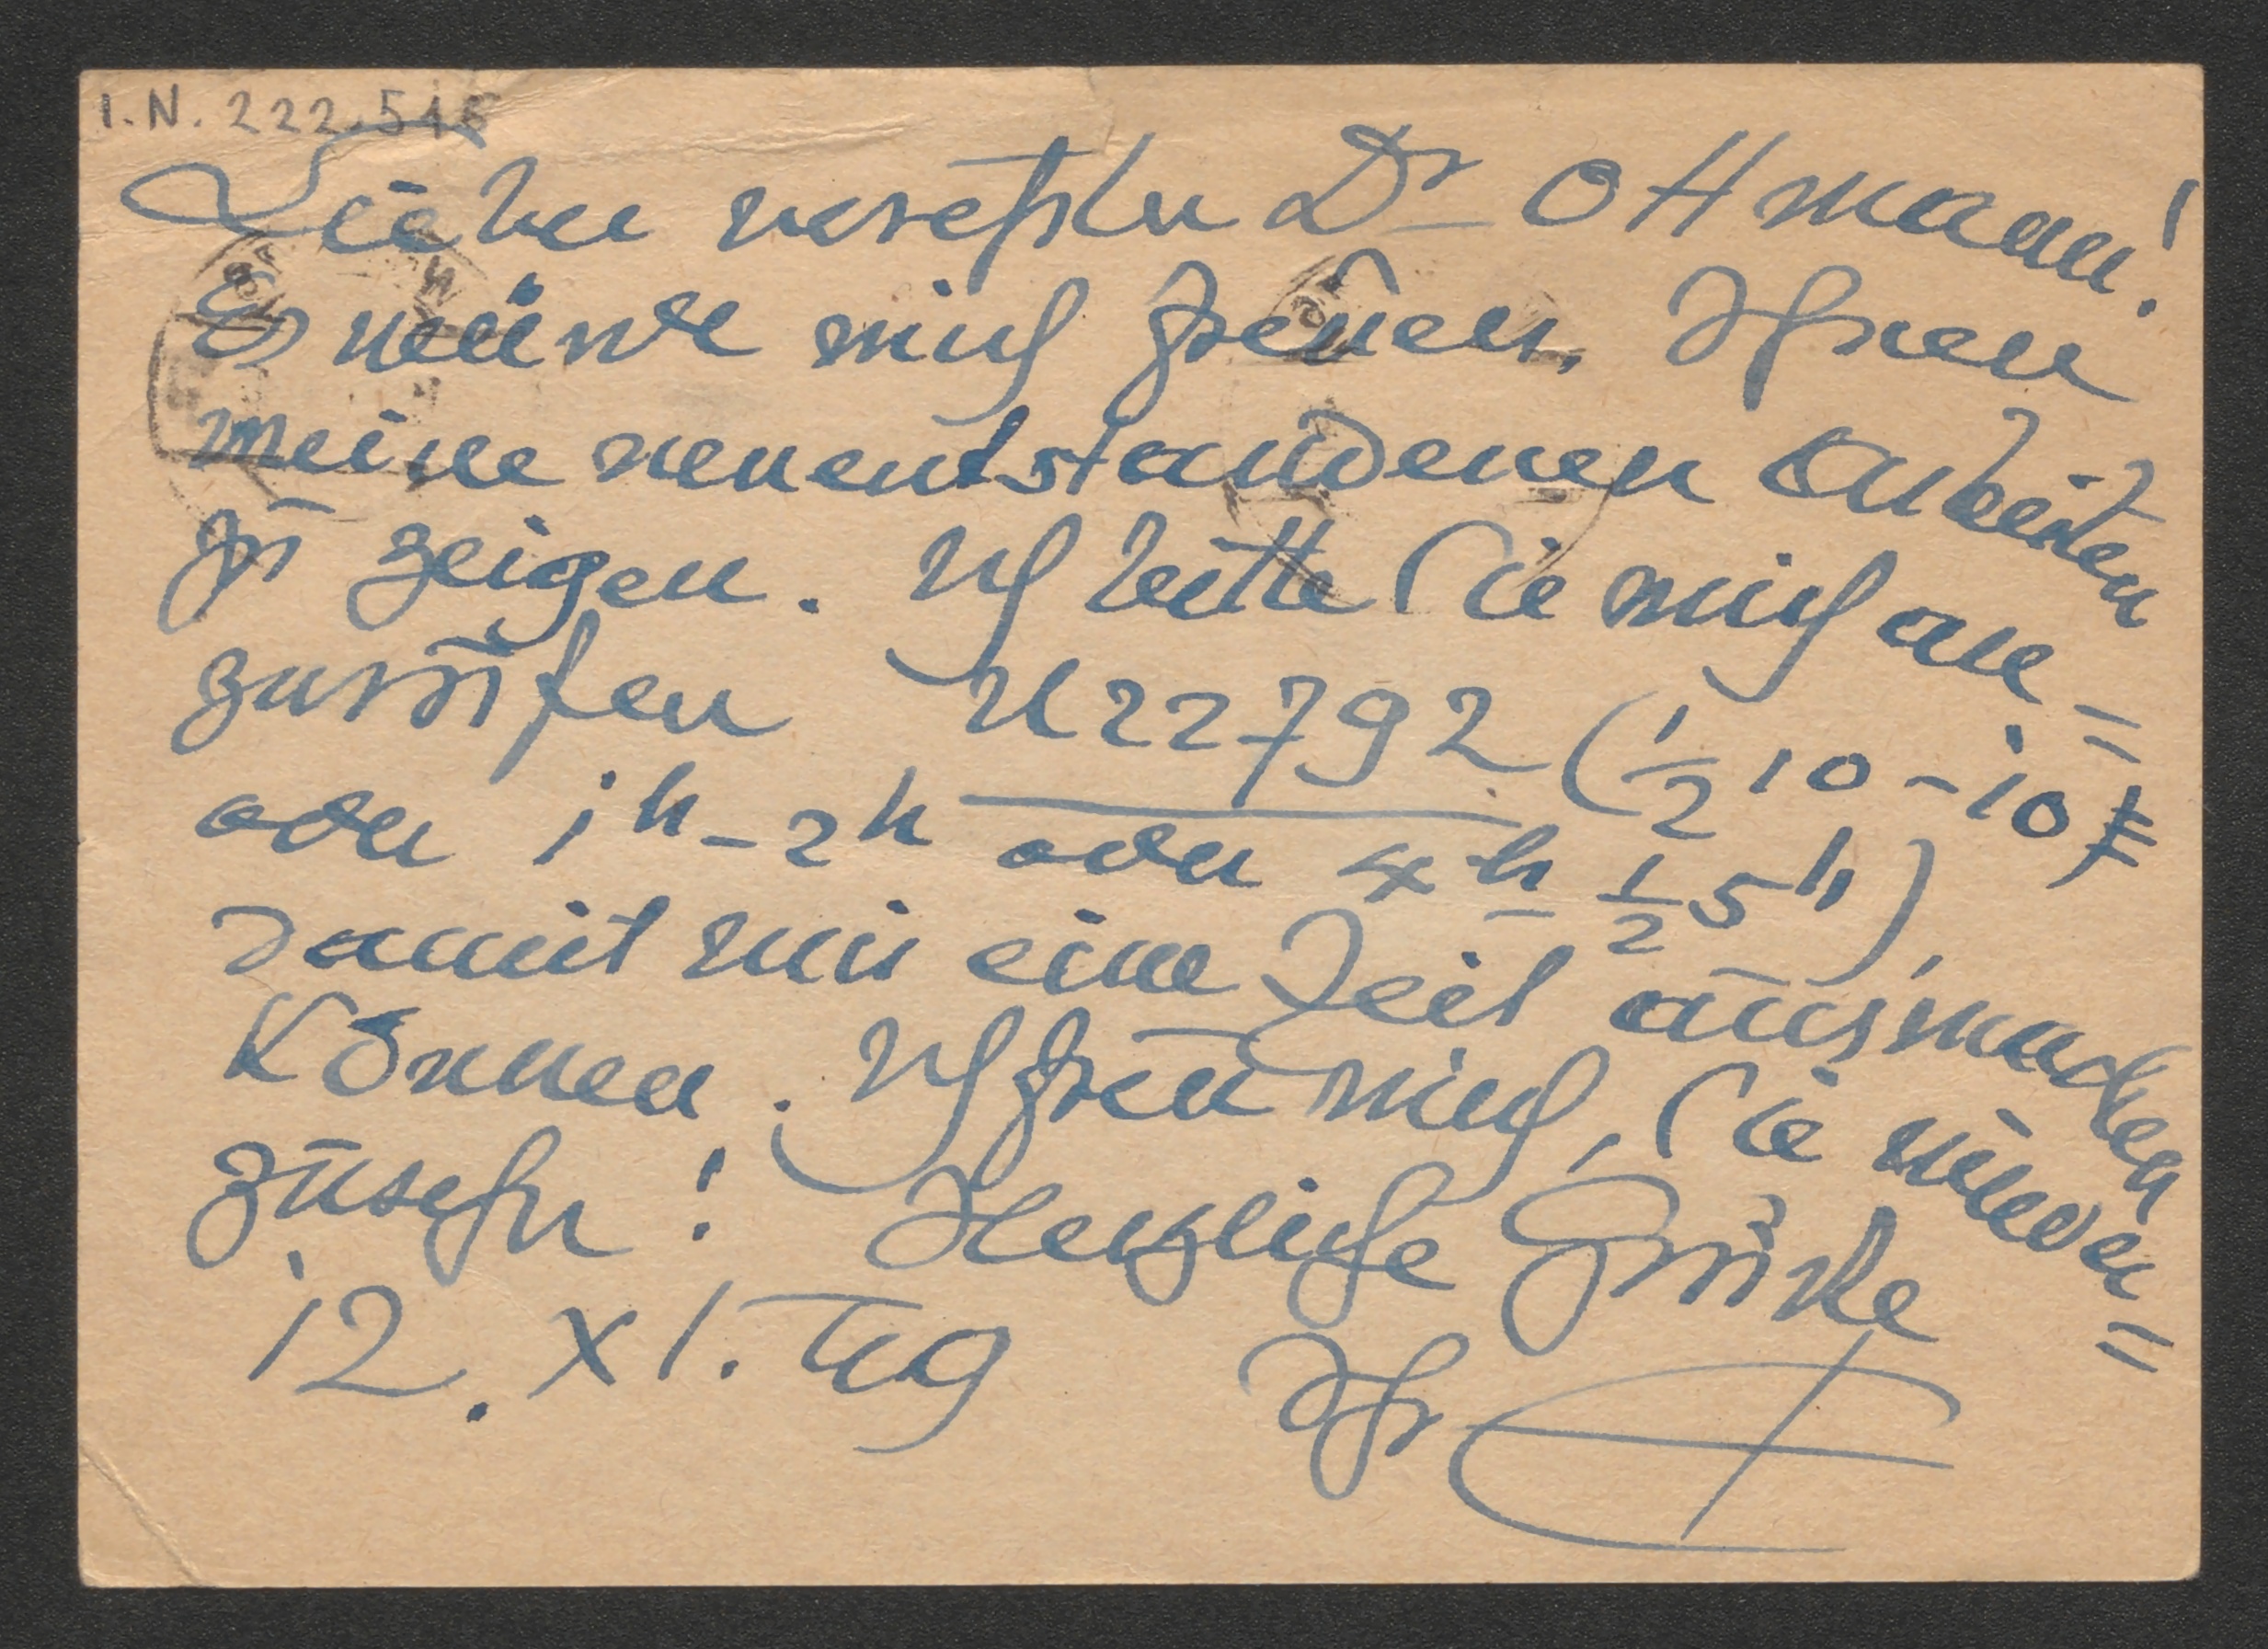 I.N. 222.546
Lieber verehrter Dr Ottmann!
Es würde mich freuen, Ihnen
meine neuentstandenen Arbeiten
zu zeigen. Ich bitte Sie mich an=
zurufen U22792 (½10-10
oder 1h-2h oder 4h ½5h),
damit wir eine Zeit ausmachen
können. Ich freu mich, Sie wieder=
zusehn! Herzliche Grüße
12. XI. 49 Ihr